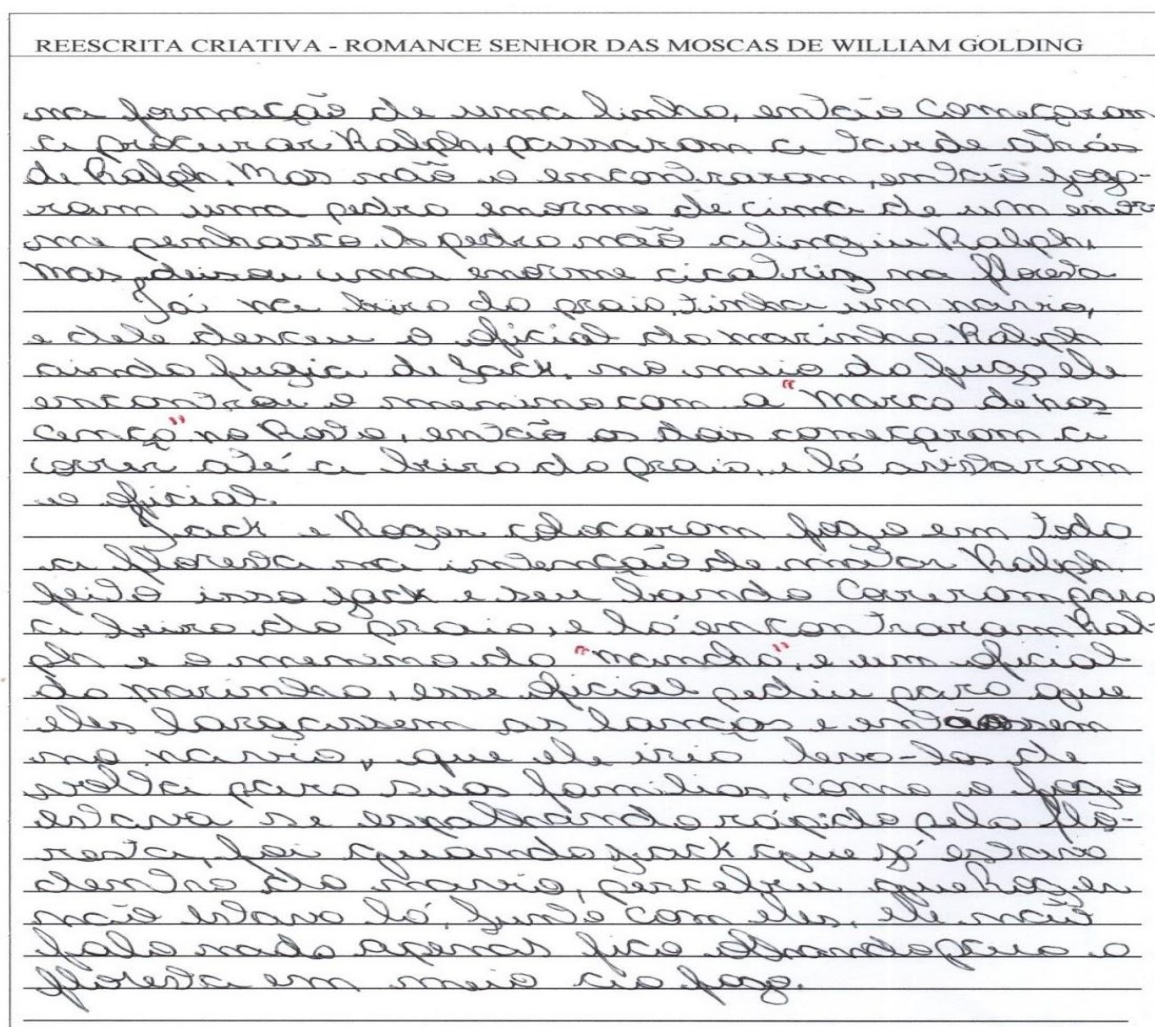 REESCRITA CRIATIVA - ROMANCE SENHOR DAS MOSCAS DE WILLIAM GOLDING
na formação de uma linha, então começaram
a procurar Ralph, passaram a tarde atrás
de Ralph. Mas não o encontraram, então joga-
ram uma pedra enorme de cima de um enor
me penhasco. A pedra não atingiu Ralph,
mas deixou uma enorme cicatriz na floresta
Já na beira da praia, tinha um navio,
e dele desceu o oficial da marinha. Ralph
ainda fugia de Jack, no meio da fuga ele
encontrou o menino com a "Marca denas
cença" no Rosto, então os dois começaram a
correr até a beira da praia, e lá avistaram
o oficial.
Jack e Roger colocaram fogo em toda
a floresta na intenção de matar Ralph.
feito isso Jack e seu bando Correram para
a beira da praia, e lá encontraram Ral-
ph e o menino da "mancha", e um oficial
da marinha, esse oficial pediu para que
eles largassem as lanças e
no navio, que ele iria leva-los de
volta para suas familias, como o fogo
estava se espalhando rápido pela flo-
resta, foi quando Jack que já estava
dentro do navio, percebeu que Roger
não estava lá, junto com eles, ele não
falo nada apenas fico olhando para a
floresta em meio ao fogo.